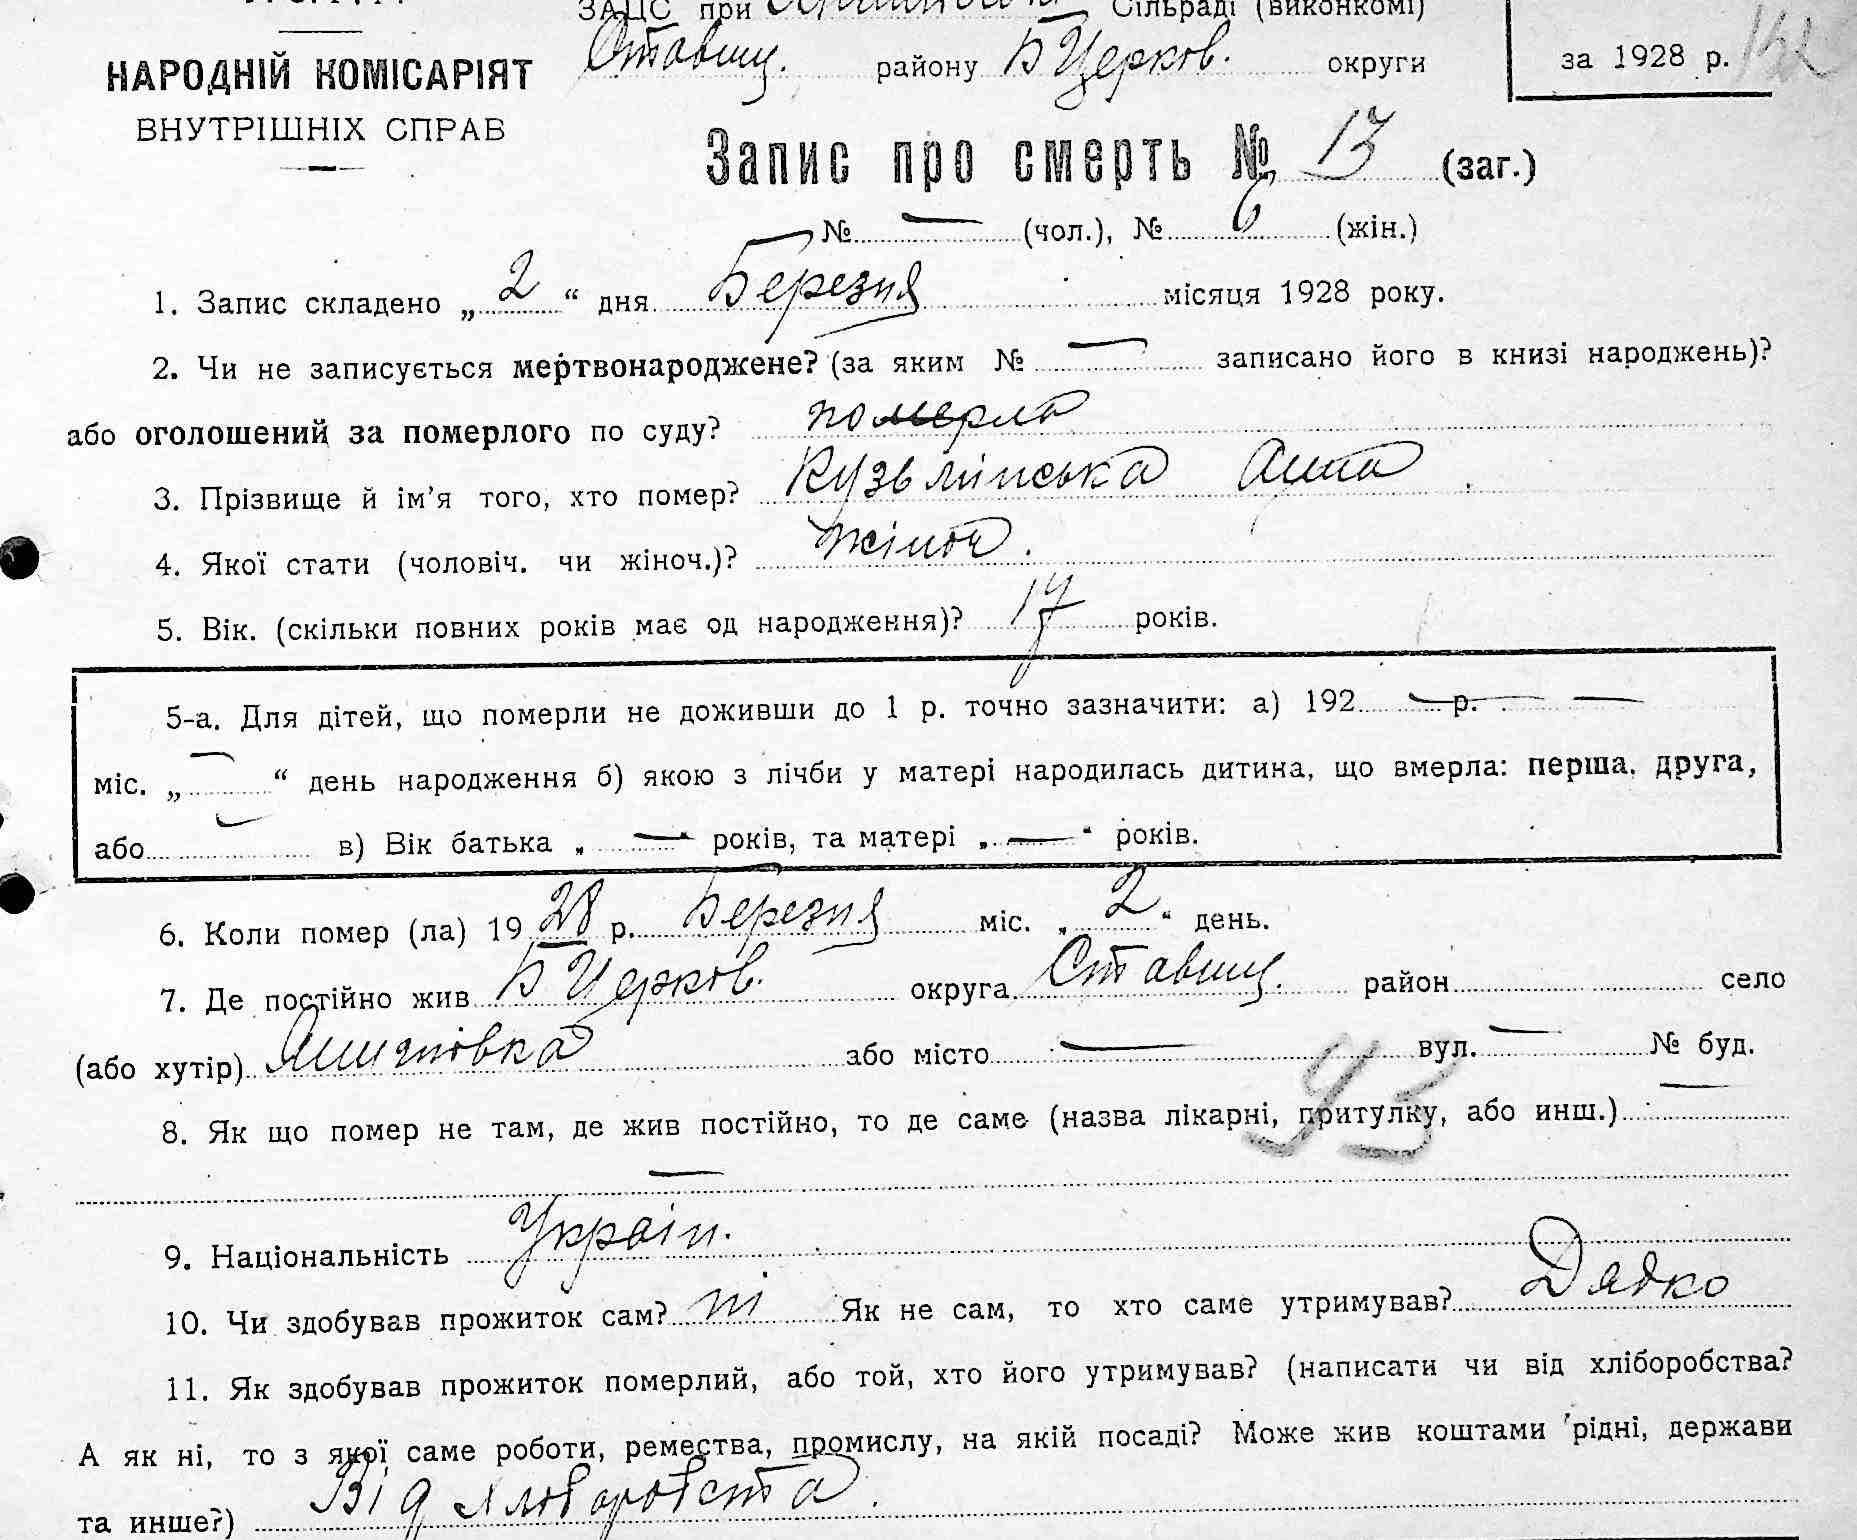 ЗАЦС при Сільраді (виконкомі)
НАРОДНІЙ КОМІСАРІЯТ
ВНУТРІШНІХ СПРАВ
Ставищ. району Б Церков. округи
за 1928 р. 142
Запис про смерть № 13 (заг.)
№ — (чол.), № 6 (жін.)
1. Запис складено „2“ дня Березня місяця 1928 року.
2. Чи не записується мертвонароджене? (за яким № — записано його в книзі народжень)?
або оголошений за померлого по суду? померла
3. Прізвище й ім'я того, хто помер? Анна
4. Якої стати (чоловіч. чи жіноч.)? жіноч.
5. Вік. (скільки повних років має од народження)? 17 років.
5-а. Для дітей, що померли не доживши до 1 р. точно зазначити: а) 192 — р. —
міс. „—“ день народження б) якою з лічби у матері народилась дитина, що вмерла: перша, друга,
або — в) Вік батька „—“ років, та матері „—“ років.
6. Коли помер (ла) 1928 р. Березня міс. „2“ день.
7. Де постійно жив Б Церков. округа Ставищ. район село
(або хутір) або місто — вул. — № буд.
93
8. Як що помер не там, де жив постійно, то де саме (назва лікарні, притулку, або инш.) —
—
9. Національність Україн.
10. Чи здобував прожиток сам? ні Як не сам, то хто саме утримував? Дядко
11. Як здобував прожиток померлий, або той, хто його утримував? (написати чи від хліборобства?
А як ні, то з якої саме роботи, ремества, промислу, на якій посаді? Може жив коштами рідні, держави
та инше?) Від хліборобства.